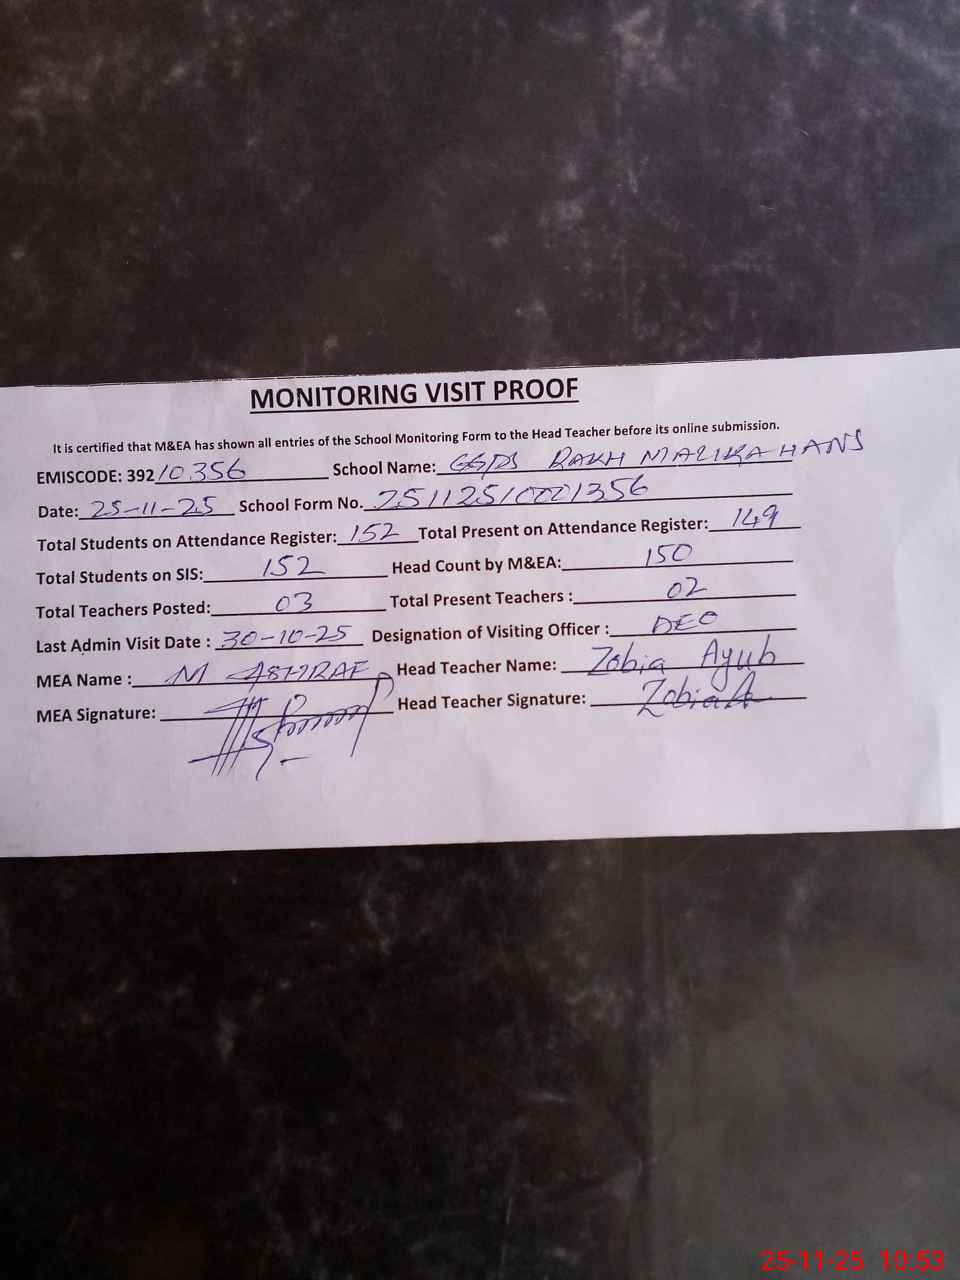 MONITORING VISIT PROOF
It is certified that M&EA has shown all entries of the School Monitoring Form to the Head Teacher before its online submission.
EMISCODE: 392 10356 School Name: GGPS RAKH MALIKA HANS
Date: 25-11-25 School Form No. 25112510001356
Total Students on Attendance Register: 152 Total Present on Attendance Register: 149
Total Students on SIS: 152 Head Count by M&EA: 150
Total Teachers Posted: 03 Total Present Teachers : 02
Last Admin Visit Date : 30-10-25 Designation of Visiting Officer : DEO
MEA Name : M ASHRAF Head Teacher Name: Zobia Ayub
MEA Signature: Head Teacher Signature: Zobia A
25-11-25 10:53